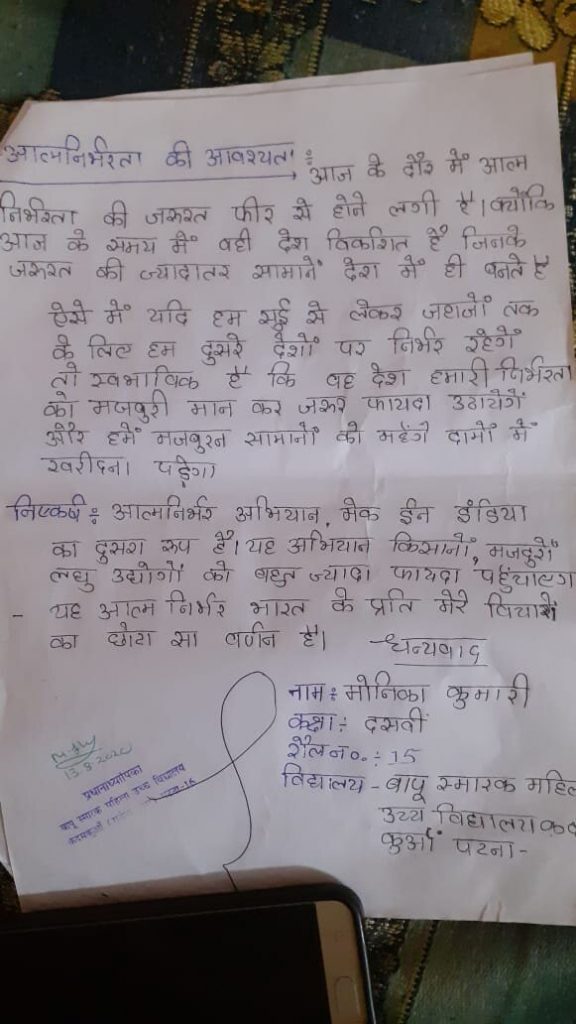 आत्मनिर्भरता की आवश्यता : आज के दौर में आत्म
निर्भरता की जरुरत फीर से होने लगी है। क्योंकि
आज के समय में वही देश विकशित है जिनके
जरुरत की ज्यादातर सामानें देश में ही बनते है
ऐसे में यदि हम सुई से लेकर जहाजों तक
के लिए हम दुसरे देशों पर निर्भर रहेगें
तो स्वभाविक है कि वह देश हमारी निर्भरता
को मजबुरी मान कर जरुर फायदा उठायेगें
और हमें मजबुरन सामानों को महेंगे दामों में
खरीदना पड़ेगा
निष्कर्ष : आत्मनिर्भर अभियान, मेक ईन इंडिया
का दुसरा रुप है। यह अभियान किसानों, मजदुरों
लघु उद्योगों को बहुत ज्यादा फायदा पहुंचाएगा
- यह आत्म निर्भर भारत के प्रति मेरे विचारों
का छोटा सा वर्णन है।
धन्यवाद
नाम : मोनिका कुमारी
कक्षा : दसवीं
रौल न०. : 15
विद्यालय - बापू स्मारक महिल
उच्च विद्यालय कद
कुआँ पटना -
13.8.2020
प्रधानाध्यापिका
बापू स्मारक महिला उच्च विद्यालय